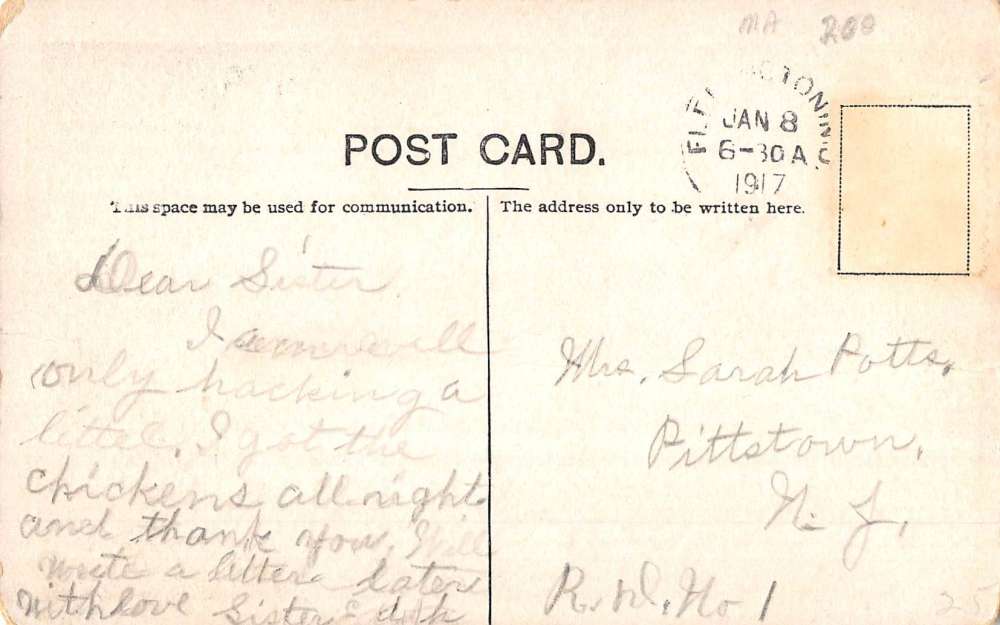 MA 200
JAN 8
6-30 A
1917
POST CARD.
This space may be used for communication.
The address only to be written here.
Dear Sister
I am well
only hacking a
littel. I got the
chickens all right
and thank you. Will
write a letter later
with love Sister
Mrs. Sarah Potts.
Pittstown,
N. J.
R.D. No 1
25